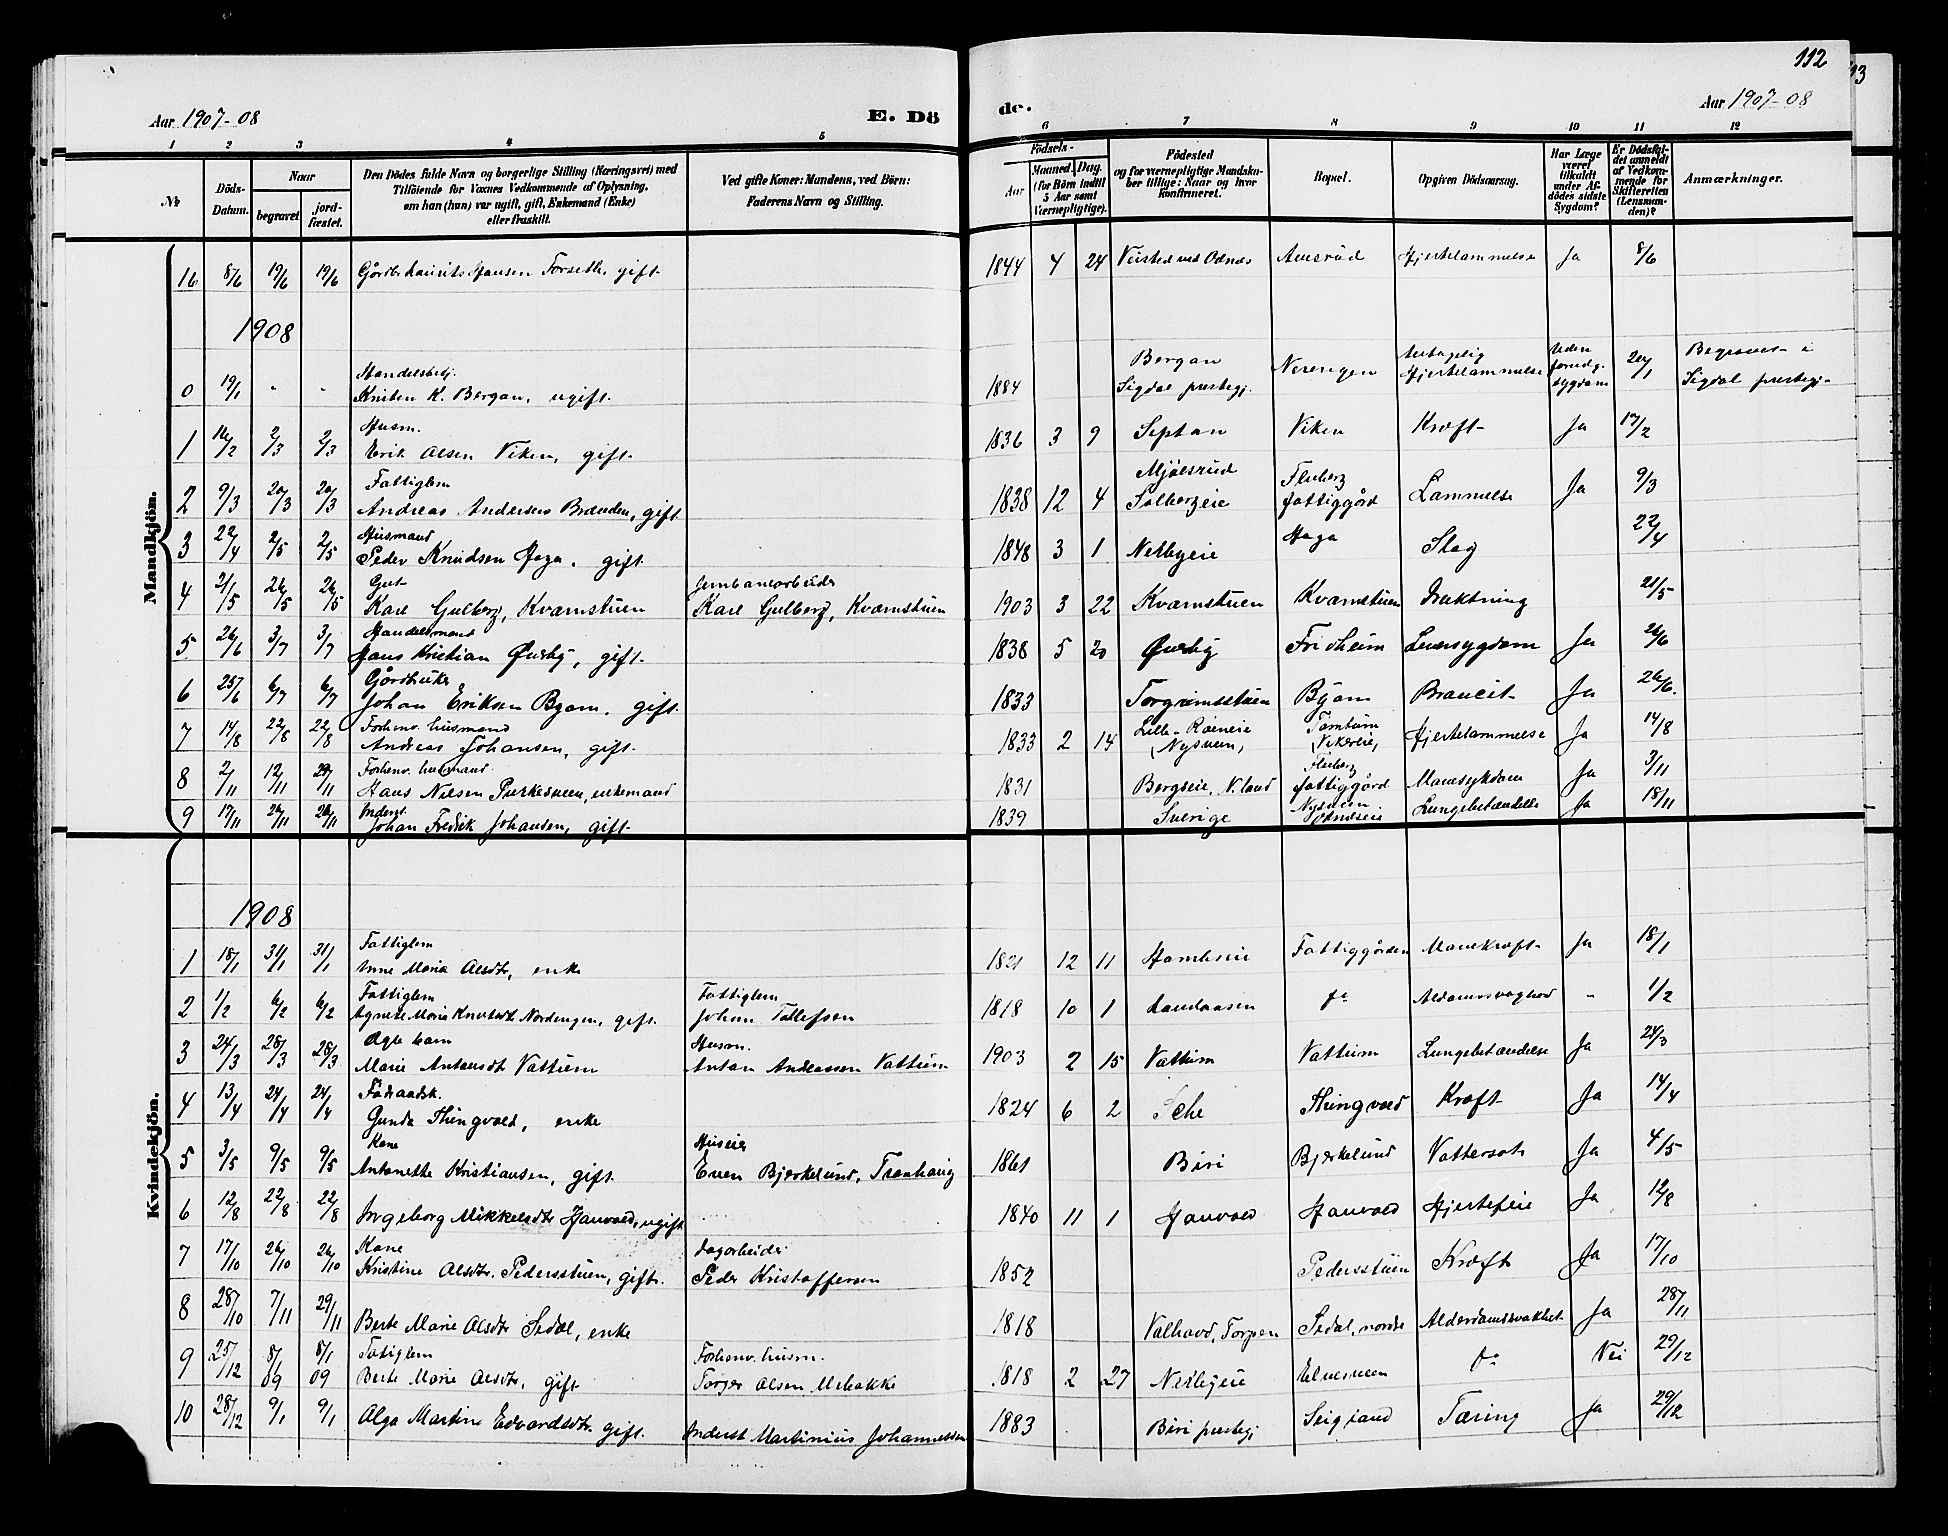 112
Aar 1907-08
E. Döde.
Aar 1907-08
1 2 3 4 5 6 7 8 9 10 11 12
№
Döds-Datum.
Naar
begravet
jord-fæstet.
Den Dödes fulde Navn og borgerlige Stilling (Næringsvei) med
Tilföiende for Voxnes Vedkommende af Oplysning,
om han (hun) var ugift, gift, Enkemand (Enke)
eller fraskilt.
Ved gifte Koner: Mandens, ved Börn:
Faderens Navn og Stilling.
Födsels-
Aar
Maaned. Dag.
(for Börn indtil
5 Aar samt
Værnepligtige).
Födested
og for værnepligtige Mandskaber tillige: Naar og hvor
konfirmeret.
Bopæl.
Opgiven Dödsaarsag.
Har Læge
været
tilkaldt
under Afdödes sidste
Sygdom?
Er Dödsfaldet anmeldt
af Vedkommende for
Skifteretten
(Lensmanden)?
Anmærkninger.
Mandkjön.
16 8/6 19/6 19/6 Gårdbr. Laurits Hansen Forseth, gift 1844 4 24 Odnæs Hjertelammelse Ja 8/6
1908
0 19/1 - - Handelsbetj. Kristen K. Bergan, ugift. 1884 Bergan Sigdal prestegj. Nerengen Hjertelammelse Uden sygdom 20/1 Begravet i Sigdal prestegj.
1 16/2 2/3 2/3 Husm. Erik Olsen Viken, gift. 1836 3 9 Septon Viken Kræft Ja 17/2
2 9/3 20/3 20/3 Fattiglem Andreas Andersen Brænden, gift 1838 12 4 Mjölsrud Solbergeie Fluberg fattiggård Lammelse Ja 9/3
3 22/4 2/5 2/5 Husmand Peder Knudsen Haga, gift. 1848 3 1 Nedbyeie Haga Slag 22/4
4 21/5 26/5 26/5 Gut Karl Gulberg, Kvæmstuen Jernbanearbeider Karl Gulberg, Kvæmstuen 1903 3 22 Kvæmstuen Kvæmstuen Drukning 21/5
5 26/6 3/7 3/7 Handelsmand Hans Kristian Öurby, gift. 1838 5 20 Öurby Fridheim Leversygdom Ja 26/6
6 25/6 6/7 6/7 Gårdbruker Johan Eriksen Byom, gift. 1833 Torgrimsstuen Byom Ja 26/6.
7 14/8 22/8 22/8 Forhenv. husmand Andreas Johansen, gift. 1833 2 14 Lille-Röineie (Nysveen) Tomtum (Vikereie) Hjertelammelse Ja 14/8
8 2/11 12/11 Forhenv. husmand Hans Nilsen Purkesveen, enkemand 1831 Bergseie, N. land Fluberg fattiggård Mavesykdom Ja 3/11
9 17/11 26/11 26/11 Inderst Johan Fredrik Johansen, gift. 1839 Sverige Nysveen Odnæseie Lungebetændelse Ja 18/11
Kvindekjön.
1908
1 18/1 31/1 31/1 Fattiglem Anne Maria Olsdtr, enke 1821 12 11 Fattiggården Mavekræft Ja 18/1
2 1/2 6/2 6/2 Fattiglem Agnete Maria Knutsdtr Nordengen, gift. Fattiglem Johan Tollefsen 1818 10 1 Landaasen do Alderdomssvaghed - 1/2
3 24/3 28/3 28/3 Ægte barn Marie Antonsdtr Vattum Husm. Anton Andreassen Vattum 1903 2 15 Vattum Vattum Lungebetændelse Ja 24/3
4 13/4 24/4 24/4 Föderaadsk. Gunda Thingvold, enke 1824 6 2 Thingvold Kræft Ja 14/4
5 3/5 9/5 9/5 Kone Antonette Kristiansen, gift. Huseier Even Bjerkelund, Tranhaug 1861 Biri Bjerkelund Vattersot Ja 4/5
6 12/8 22/8 22/8 Ingeborg Mikkelsdtr Houvold, ugift 1840 11 1 Houvold Houvold Hjertefeil Ja 12/8
7 17/10 26/10 26/10 Kone Kristine Olsdtr. Pedersstuen, gift. Dagarbeider Peder Kristoffersen 1852 Pedersstuen Kræft Ja 17/10
8 28/10 7/11 29/11 Berte Marie Olsdtr Sedal, enke 1818 Valhovd, Torpen Sedal, nordre Alderdomssvakhet Ja 28/11
9 25/12 8/1 09 8/1 09 Fatiglem Berte Marie Olsdtr, gift. Forhenv. husm. Torger Olsen Molokke 1818 2 27 Nedbyeie Elvesveen do Nei 29/12
10 28/12 9/1 9/1 Olga Martine Edvardsdtr. gift. Inderst Martinius Johannessen 1883 Biri prestegj Tæring Ja 29/12